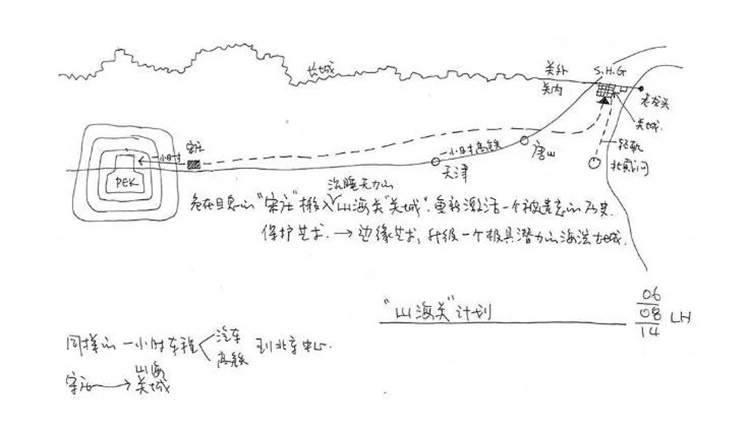 长城
关外
S.H.G
关内
老龙头
关城
轻轨
北戴河
宋庄
一小时
PEK
一小时高铁
唐山
天津
沉睡无力的
危在旦夕的“宋庄”搬入山海关“关城”.重新激活一个被遗忘的历史
保护艺术. → 边缘艺术,升级一个极具潜力的海滨地域.
“山海关”计划
06
08
14
LH
同样的一小时车程
汽车
高铁
到北京中心.
宋庄 → 山海关城